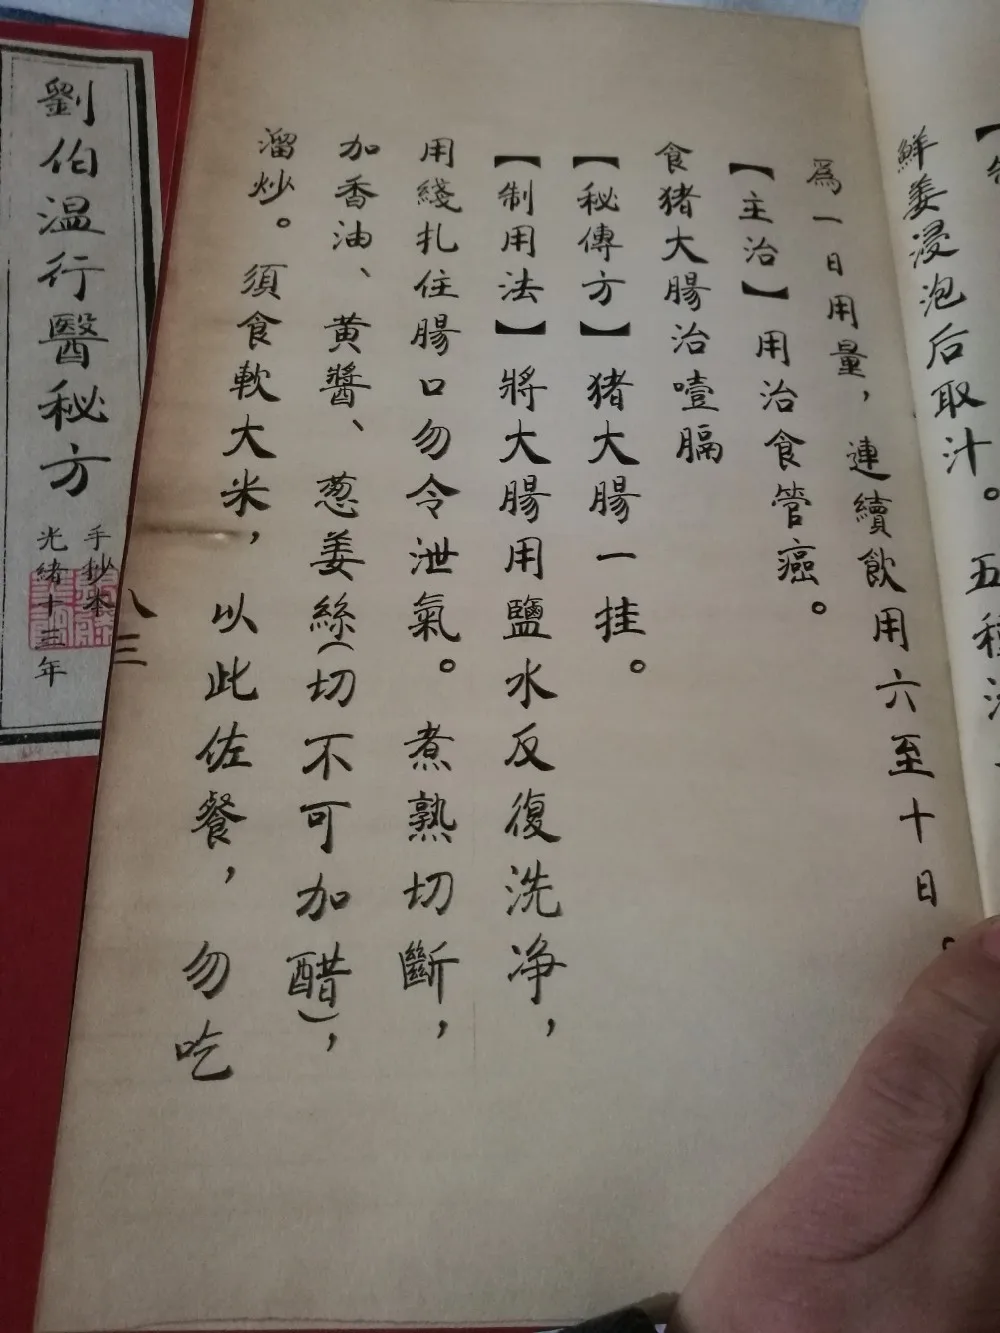 鮮姜浸泡后取汁。五種
為一日用量，連續飲用六至十日。
【主治】用治食管癌。
食豬大腸治噎膈
【秘傳方】豬大腸一挂。
【制用法】將大腸用鹽水反復洗净，
用綫扎住腸口勿令泄氣。煮熟切斷，
加香油、黄醬、葱姜絲（切不可加醋），
溜炒。須食軟大米，以此佐餐，勿吃
八三
劉伯温行醫秘方
手抄本
光緒十三年